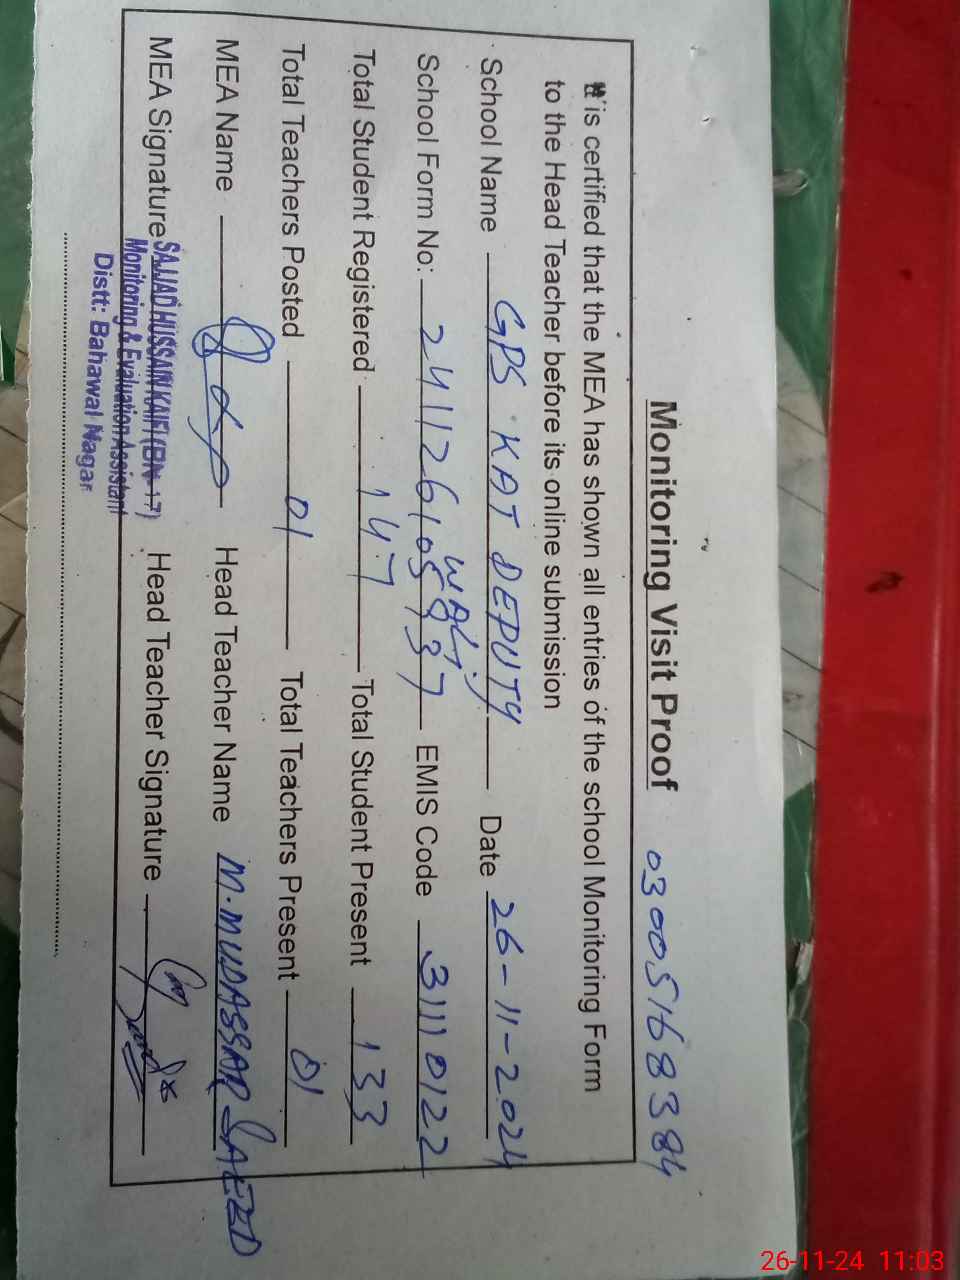 Monitoring Visit Proof 03005168384
It is certified that the MEA has shown all entries of the school Monitoring Form
to the Head Teacher before its online submission
School Name GPS KAT DEPUTY WALI Date 26-11-2024
School Form No: 241126105837 EMIS Code 31110122
Total Student Registered 147 Total Student Present 133
Total Teachers Posted 01 Total Teachers Present 01
MEA Name Head Teacher Name M.MUDASSAR SAEED
MEA Signature SAJJAD HUSSAIN KAIFI (BN-17) Head Teacher Signature
Monitoring & Evaluation Assistant
Distt: Bahawal Nagar
26-11-24 11:03